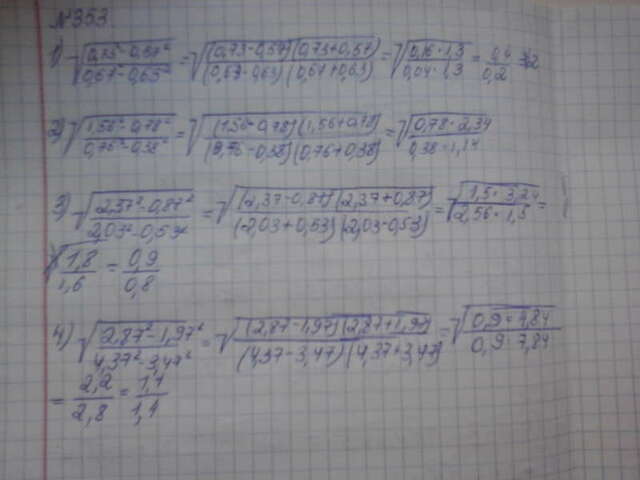 N 353
1) √((0,73² - 0,57²)/(0,67² - 0,63²)) = √(((0,73-0,57)(0,73+0,57))/((0,67-0,63)(0,67+0,63))) = √((0,16·1,3)/(0,04·1,3)) = 0,4/0,2 = 2
2) √((1,56² - 0,78²)/(0,76² - 0,38²)) = √(((1,56-0,78)(1,56+0,78))/((0,76-0,38)(0,76+0,38))) = √((0,78·2,34)/(0,38·1,14))
3) √((2,37² - 0,87²)/(2,03² - 0,53²)) = √(((2,37-0,87)(2,37+0,87))/((2,03+0,53)(2,03-0,53))) = √((1,5·3,24)/(2,56·1,5)) =
1,8/1,6 = 0,9/0,8
4) √((2,87² - 1,97²)/(4,37² - 3,47²)) = √(((2,87-1,97)(2,87+1,97))/((4,37-3,47)(4,37+3,47))) = √((0,9·4,84)/(0,9·7,84))
= 2,2/2,8 = 1,1/1,4